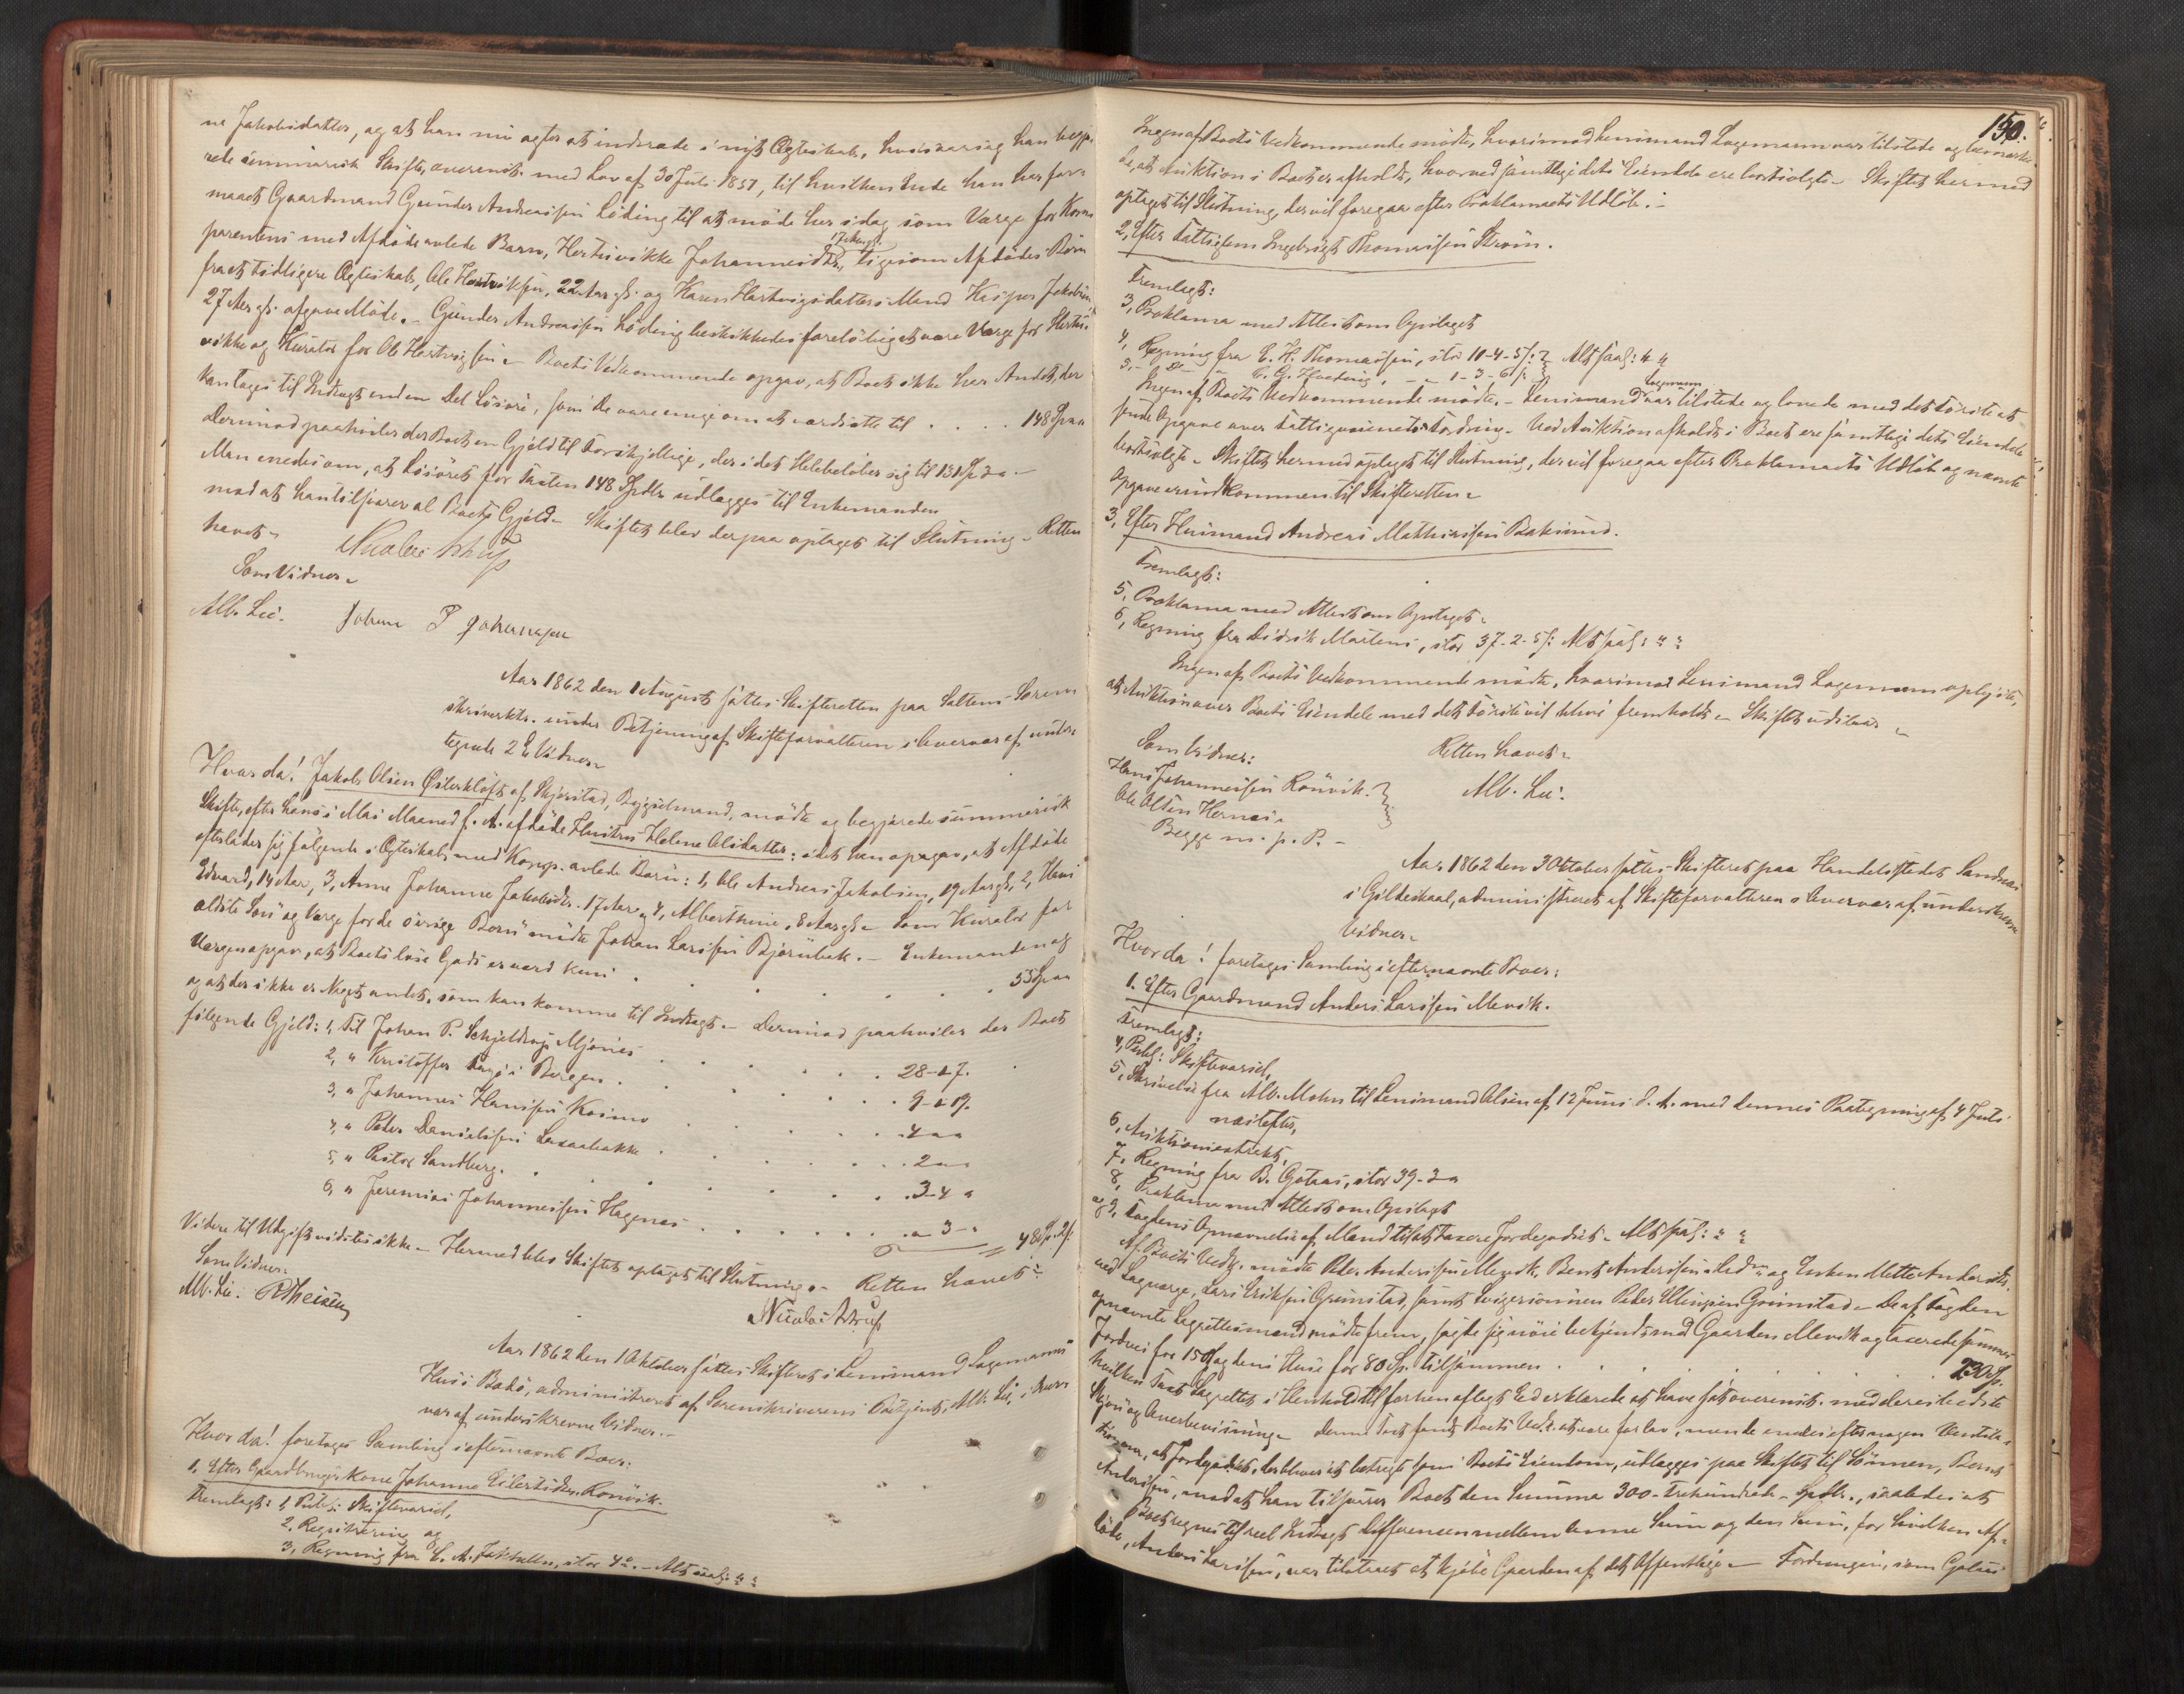 ne Jakobsdatter, og at han nu agter at indtræde i nyt Ægteskab, hvisaarsag han begjæ-
rede summarisk Skifte, overenst. med Lov af 30 Juli 1851, til hvilken Ende han har for-
maaet Gaardmand Gunder Andreassen Løding til at møde her idag som Værge for Kom-
parentens med Afdøde avlede Barn, Hertinvikke Johannesdtr., ligesom Afdødes Børn
fra et tidligere Ægteskab, Ole Hartviksen, 22 Aar gl. og Karen Hartvigsdatters Mand Kasper Jakobsen
27 Aar gl. afgave Møde. - Gunder Andreassen Løding beskikkedes foreløbig at være Værge for Hertin-
vikke og Kurator for Ole Hartvigsen - Boets Vedkommende opgav, at Boet ikke har Andet, der
kan tages til Indtægt end en Del Løsøre, som De vare enige om at værdsætte til . . . . 148 Spd
Derimod paahviler der Boet en Gjeld til Forskjellige, der i det Hele beløber sig til 131 Sp
Man enedes om, at Løsøret for Taxten 148 Spdlr udlægges til Enkemanden
mod at han tilsvarer al Boets Gjeld - Skiftet blev derpaa optaget til Slutning - Retten
hævet -
Nicolai Astrup
Som Vidner -
Alb. Lie. Johan P Johansen
Aar 1862 den 1 August sattes Skifteretten paa Saltens Soren-
skriverktr. under Betjening af Skifteforvalteren i Overvær af under-
tegnede 2de Vidner -
Hvor da! Jakob Olsen Østerkløft af Skjerstad, Bygselmand, mødte og begjærede summarisk
Skifte, efter hans i Mai Maaned f. A. afdøde Hustru Helene Olsdatter; idet han opgav, at Afdøde
efterlader sig følgende i Ægteskab med Komp. avlede Børn: 1, Ole Andreas Jakobsen, 19 Aar gl., 2, Hans
Edvard, 14 Aar, 3, Anne Johanna Jakobsdtr. 17 Aar og 4, Alberthine, 8 Aar gl. - Som Kurator for
ældste Søn og Værge for de øvrige Børn mødte Johan Larssen Bjørnbak. - Enkemanden og
Værgen opgav, at Boets løse Gods er værd kun . . . . . . . 53 Spd
og at der ikke er Noget andet, som kan komme til Indtægt - Derimod paahviler der Boet
følgende Gjeld: 1, Til Johan P. Schjeldrup Mjønes . . . . . 28-1-7.
2, " Kristoffer i Bergen . . . . . 9-1-19.
3, " Johannes Hanssen Kosmo . . . . . 4 " "
4, " Peder Danielssen . . . . . 2 " "
5, " Pastor Sandberg . . . . . 3-4 "
6, " Jeremias Johannessen Hagenes . . . . . " 3 "
48 Sp. 2 ſ
Videre til Udgift vidstes ikke - Hermed blev Skiftet optaget til Slutning. - Retten hævet -
Som Vidner -
Alb. Lie. P. Theisen
Nicolai Astrup
Aar 1862 den 1 Oktober sattes Skifteret i Lensmand Lagemanns
Hus i Bodø, administreret af Sorenskriverens Betjent, Alb. Lie, i Over-
vær af underskrevne Vidner. -
Hvor da! foretoges Samling i efternævnte Boer:
1. Efter Gaardbruger kone Johanna Eilertsdtr. Rønvik.
Fremlagt: 1, Publ: Skiftevarsel,
2, Registrering og
3, Regning fra C. A. Jakhelln, stor - Alt saal: " "
150.
Ingen af Boets Vedkommende mødte, hvorimod Lensmand Lagemann var tilstede og bemærke-
de, at Auktion i Boet er afholdt, hvorved samtlige dets Eiendele ere bortsolgte - Skiftet hermed
optaget til Slutning, der vil foregaa efter Proklamaets Udløb. -
2, Efter Fattiglem Ingebrigt Thomassen Strøm.
Fremlagt:
3, Proklama med Attest om Opslaget
4, Regning fra E. H. Thomassen, stor 10-4-5 ſ:
5, - Do - " C. G. Harding, - " 1-3-6 ſ: Alt saal: " "
Ingen af Boets Vedkommende mødte. - Lensmand Lagemann var tilstede og lovede med det første at
sende Opgave over Fattigvæsenets Fordring. Ved Auktion afholdt i Boet ere samtlige dets Eiendele
bortsolgte - Skiftet hermed optaget til Slutning, der vil foregaa efter Proklamaets Udløb og nævnte
Opgave er indkommen til Skifteretten -
3, Efter Huusmand Andreas Mathiassen Baksund.
Fremlagt:
5, Proklama med Attest om Opslaget -
6, Regning fra Didrik Martens, stor 37-2-5 ſ: Alt saal: " "
Ingen af Boets Vedkommende mødte, hvorimod Lensmand Lagemann oplyste,
at Auktion over Boets Eiendele med det første vil blive fremholdt - Skiftet udstaar -
Som Vidner: Retten hævet -
Hans Johannessen Rønvik. Alb. Lie.
Ole Olsen Hernes.
Begge m. p. P. -
Aar 1862 den 3 Oktober sattes Skifteret paa Handelsstedet Sandnes
i Gildeskaal, administreret af Skifteforvalteren i Overvær af underskrevne
Vidner -
Hvor da! foretoges Samling i efternævnte Boer:
1. Efter Gaardmand Anders Larssen Mevik.
Fremlagt:
4, Publ: Skiftevarsel,
5, Skrivelse fra Alb. Mohn til Lensmand Olsen af 12 Juni d. A. med dennes Paategning af 4 Juli
næstefter,
6, Auktionsextrakt,
7, Regning fra B. Gotaas, stor 39-3 "
8, Proklama med Attest om Opslaget
og 9, Fogdens Opnævnelse af Mænd til at taxere Jordegodset - Alt saal: " "
Af Boets Vedk. mødte Peder Anderssen Mevik, Bernt Anderssen ibdm og Enken Mette Andersdtr.
med Laugværge, Lars Eriksen Grimstad, samt Svigersønnen Peder Ellingsen Grimstad - De af Fogden
opnævnte Lagrettesmænd mødte frem, sagde sig nøie bekjendt med Gaarden Mevik og taxerede sammes
Jordvei for 150 Sp og dens Huse for 80 Sp. tilsammen . . . . . . . 230 Sp.
hvilken Taxt Lagrettet i Henhold til forhen aflagt Ed erklærede at have sat overenst. med deres bedste
Skjøn og Overbevisning - Denne Taxt fandt Boets Vedk. at være for lav, men de enedes efter nogen Ventila-
tion om, at Jordegodset, der bliver at betragte som Boets Eiendom, udlægges paa Skiftet til Sønnen, Bernt
Anderssen, mod at han tilsvarer Boet den Summa 300 - trehundrede - Spdlr., saaledes at
Boet regnes til reel Indtægt Differencen mellem denne Sum og den Sum, for hvilken Af-
døde, Anders Larssen, var tilstaaet at kjøbe Gaarden af det Offentlige - Fordringen, som Gotaas